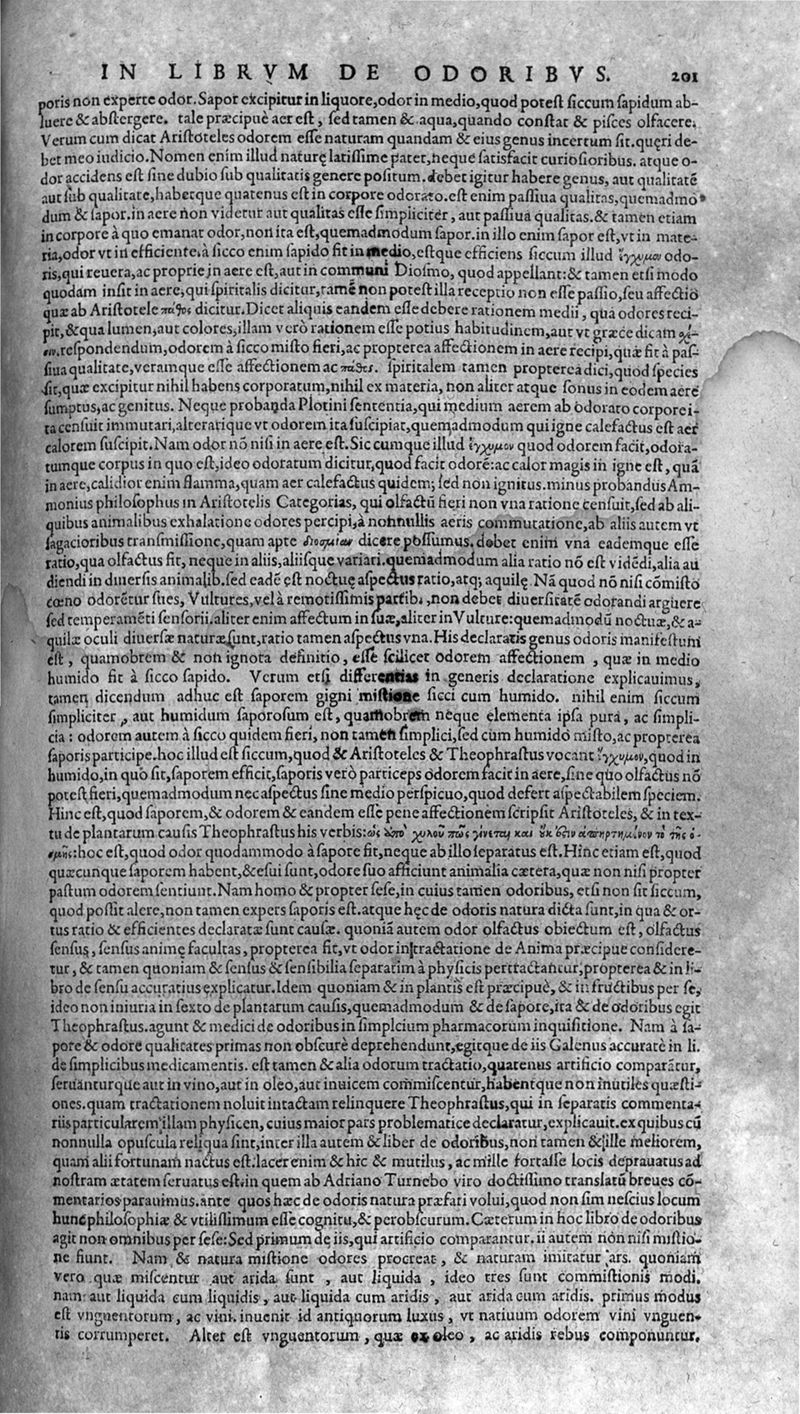 IN LIBRVM DE ODORIBVS. 201
poris non experte odor. Sapor excipitur in liquore, odor in medio, quod potest siccum sapidum ab-
luere & abstergere. tale præcipuè aer est, sed tamen & aqua, quando constat & pisces olfacere.
Verum cum dicat Aristoteles odorem esse naturam quandam & eius genus incertum sit. quęri de-
bet meo iudicio. Nomen enim illud naturę latissime patet, neque satisfacit curiosioribus. atque o-
dor accidens est sine dubio sub qualitatis genere positum. debet igitur habere genus, aut qualitatē
aut sub qualitate, habetque quatenus est in corpore odorato. est enim passiua qualitas, quemadmo-
dum & sapor. in aere non videtur aut qualitas esse simpliciter, aut passiua qualitas. & tamen etiam
in corpore à quo emanat odor, non ita est, quemadmodum sapor. in illo enim sapor est, vt in mate-
ria, odor vt in efficiente. à sicco enim sapido fit in medio, estque efficiens siccum illud ἔγχυμον odo-
ris, qui reuera, ac proprie in aere est, aut in communi Diosmo, quod appellant: & tamen etsi modo
quodam insit in aere, qui spiritalis dicitur, tamē non potest illa receptio non esse passio, seu affectiō
quæ ab Aristotele πάθος dicitur. Dicet aliquis eandem esse debere rationem medii, qua odores reci-
pit, & qua lumen, aut colores, illam verò rationem esse potius habitudinem, aut vt græce dicam σχέ-
σιν. respondendum, odorem à sicco misto fieri, ac propterea affectionem in aere recipi, quæ fit à pas-
siua qualitate, veramque esse affectionem ac πάθος. spiritalem tamen propterea dici, quod species
sit, quæ excipitur nihil habens corporatum, nihil ex materia, non aliter atque sonus in eodem aere
sumptus, ac genitus. Neque probanda Plotini sententia, qui medium aerem ab odorato corpore i-
ta censuit immutari, alterarique vt odorem ita suscipiat, quemadmodum qui igne calefactus est aer
calorem suscipit. Nam odor nō nisi in aere est. Sic cumque illud ἔγχυμον quod odorem facit, odora-
tumque corpus in quo est, ideo odoratum dicitur, quod facit odorē: ac calor magis in igne est, quā
in aere, calidior enim flamma, quam aer calefactus quidem; sed non ignitus. minus probandus Am-
monius philosophus in Aristotelis Categorias, qui olfactū fieri non vna ratione censuit, sed ab ali-
quibus animalibus exhalatione odores percipi, à nonnullis aeris commutatione, ab aliis autem vt
sagacioribus transmissione, quam apte dicere possumus. debet enim vna eademque esse
ratio, qua olfactus fit, neque in aliis, aliisque variari. quemadmodum alia ratio nō est vidēdi, alia au
diendi in diuersis animalib. sed eadē est noctuę aspectus ratio, atq; aquilę. Nā quod nō nisi cōmisto
cœno odorētur sues, Vultures, vel à remotissimis partib. non debet diuersitatē odorandi arguere
sed temperamēti sensorii. aliter enim affectum in sue, aliter in Vulture: quemadmodū noctuæ, & a-
quilæ oculi diuersæ naturæ sunt, ratio tamen aspectus vna. His declaratis genus odoris manifestum
est, quamobrem & non ignota definitio, esse scilicet odorem affectionem, quæ in medio
humido fit à sicco sapido. Verum etsi differentias in generis declaratione explicauimus,
tamen dicendum adhuc est saporem gigni mistione sicci cum humido. nihil enim siccum
simpliciter, aut humidum saporosum est, quamobrem neque elementa ipsa pura, ac simpli-
cia: odorem autem à sicco quidem fieri, non tamen simplici, sed cum humido misto, ac propterea
saporis participe. hoc illud est siccum, quod & Aristoteles & Theophrastus vocant ἔγχυμον, quod in
humido, in quo fit, saporem efficit, saporis verò particeps odorem facit in aere, sine quo olfactus nō
potest fieri, quemadmodum nec aspectus sine medio perspicuo, quod defert aspectabilem speciem.
Hinc est, quod saporem, & odorem & eandem esse pene affectionem scripsit Aristoteles, & in tex-
tu de plantarum causis Theophrastus his verbis: ὡς ἀπὸ χυλοῦ πως γίνεται καὶ οὐκ ἔστιν ἀπηρτημένον τὸ τῆς ὀ-
σμῆς: hoc est, quod odor quodammodo à sapore fit, neque ab illo separatus est. Hinc etiam est, quod
quæcunque saporem habent, & esui sunt, odore suo afficiunt animalia cætera, quæ non nisi propter
pastum odorem sentiunt. Nam homo & propter sese, in cuius tamen odoribus, etsi non sit siccum,
quod possit alere, non tamen expers saporis est. atque hęc de odoris natura dicta sunt, in qua & or-
tus ratio & efficientes declaratæ sunt causæ. quoniā autem odor olfactus obiectum est, olfactus
sensus, sensus animę facultas, propterea fit, vt odor in tractatione de Anima præcipue considere-
tur, & tamen quoniam & sensus & sensibilia separatim à physicis pertractantur, propterea & in li-
bro de sensu accuratius explicatur. Idem quoniam & in plantis est præcipuè, & in fructibus per se,
ideo non iniuria in sexto de plantarum causis, quemadmodum & de sapore, ita & de odoribus egit
Theophrastus. agunt & medici de odoribus in simplcium pharmacorum inquisitione. Nam à sa-
pore & odore qualitates primas non obscurè deprehendunt, egitque de iis Galenus accuratè in li.
de simplicibus medicamentis. est tamen & alia odorum tractatio, quatenus artificio comparātur,
seruanturque aut in vino, aut in oleo, aut inuicem commiscentur, habentque non inutiles quæsti-
ones. quam tractationem noluit intactam relinquere Theophrastus, qui in separatis commenta-
riis particularem illam physicen, cuius maior pars problematice declaratur, explicauit. ex quibus cū
nonnulla opuscula reliqua sint, inter illa autem & liber de odoribus, non tamen & ille meliorem,
quam alii fortunam nactus est. lacer enim & hic & mutilus, ac mille fortasse locis deprauatus ad
nostram ætatem seruatus est. in quem ab Adriano Turnebo viro doctissimo translatū breues cō-
mentarios parauimus. ante quos hæc de odoris natura præfari volui, quod non sim nescius locum
hunc philosophiæ & vtilissimum esse cognitu, & perobscurum. Cæterum in hoc libro de odoribus
agit non omnibus per sese: Sed primum de iis, qui artificio comparantur. ii autem non nisi mistio-
ne fiunt. Nam & natura mistione odores procreat, & naturam imitatur ars. quoniam
vero quæ miscentur aut arida sunt, aut liquida, ideo tres sunt commistionis modi.
nam aut liquida cum liquidis, aut liquida cum aridis, aut arida cum aridis. primus modus
est vnguentorum, ac vini. inuenit id antiquorum luxus, vt natiuum odorem vini vnguen-
tis corrumperet. Alter est vnguentorum, quæ ex oleo, ac aridis rebus componuntur.